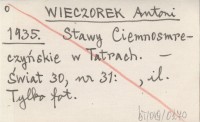 o
WIECZOREK Antoni
1935. Stawy Ciemnosmre-
czyńskie w Tatrach. —
Świat 30, nr 31: , il.
Tylko fot.